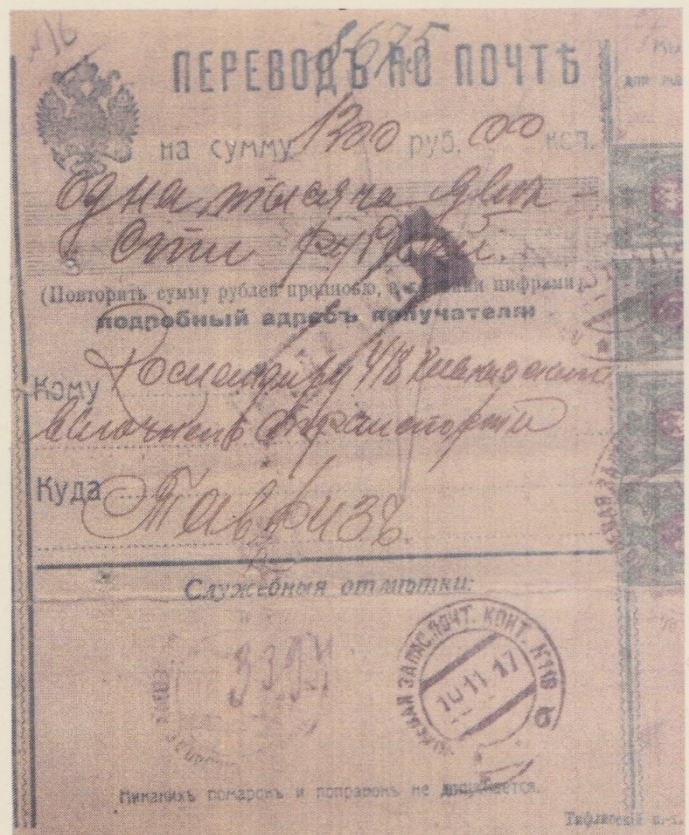 5675
ПЕРЕВОДЪ ПО ПОЧТѢ
на сумму 1200 руб. 00 коп.
Одна тысяча двѣ-
сти рублей.
(Повторить сумму рублей прописью, а копѣйки цифрами)
подробный адресъ получателя
Кому Командиру 4/8
вьючнаго транспорта
Куда Тавризъ.
Служебныя отмѣтки:
3394
ЗАПАС. ПОЧТ. КОНТ. N118
10 11 17
б
Никакихъ помарокъ и поправокъ не допускается.
Тифлисской п.-т.